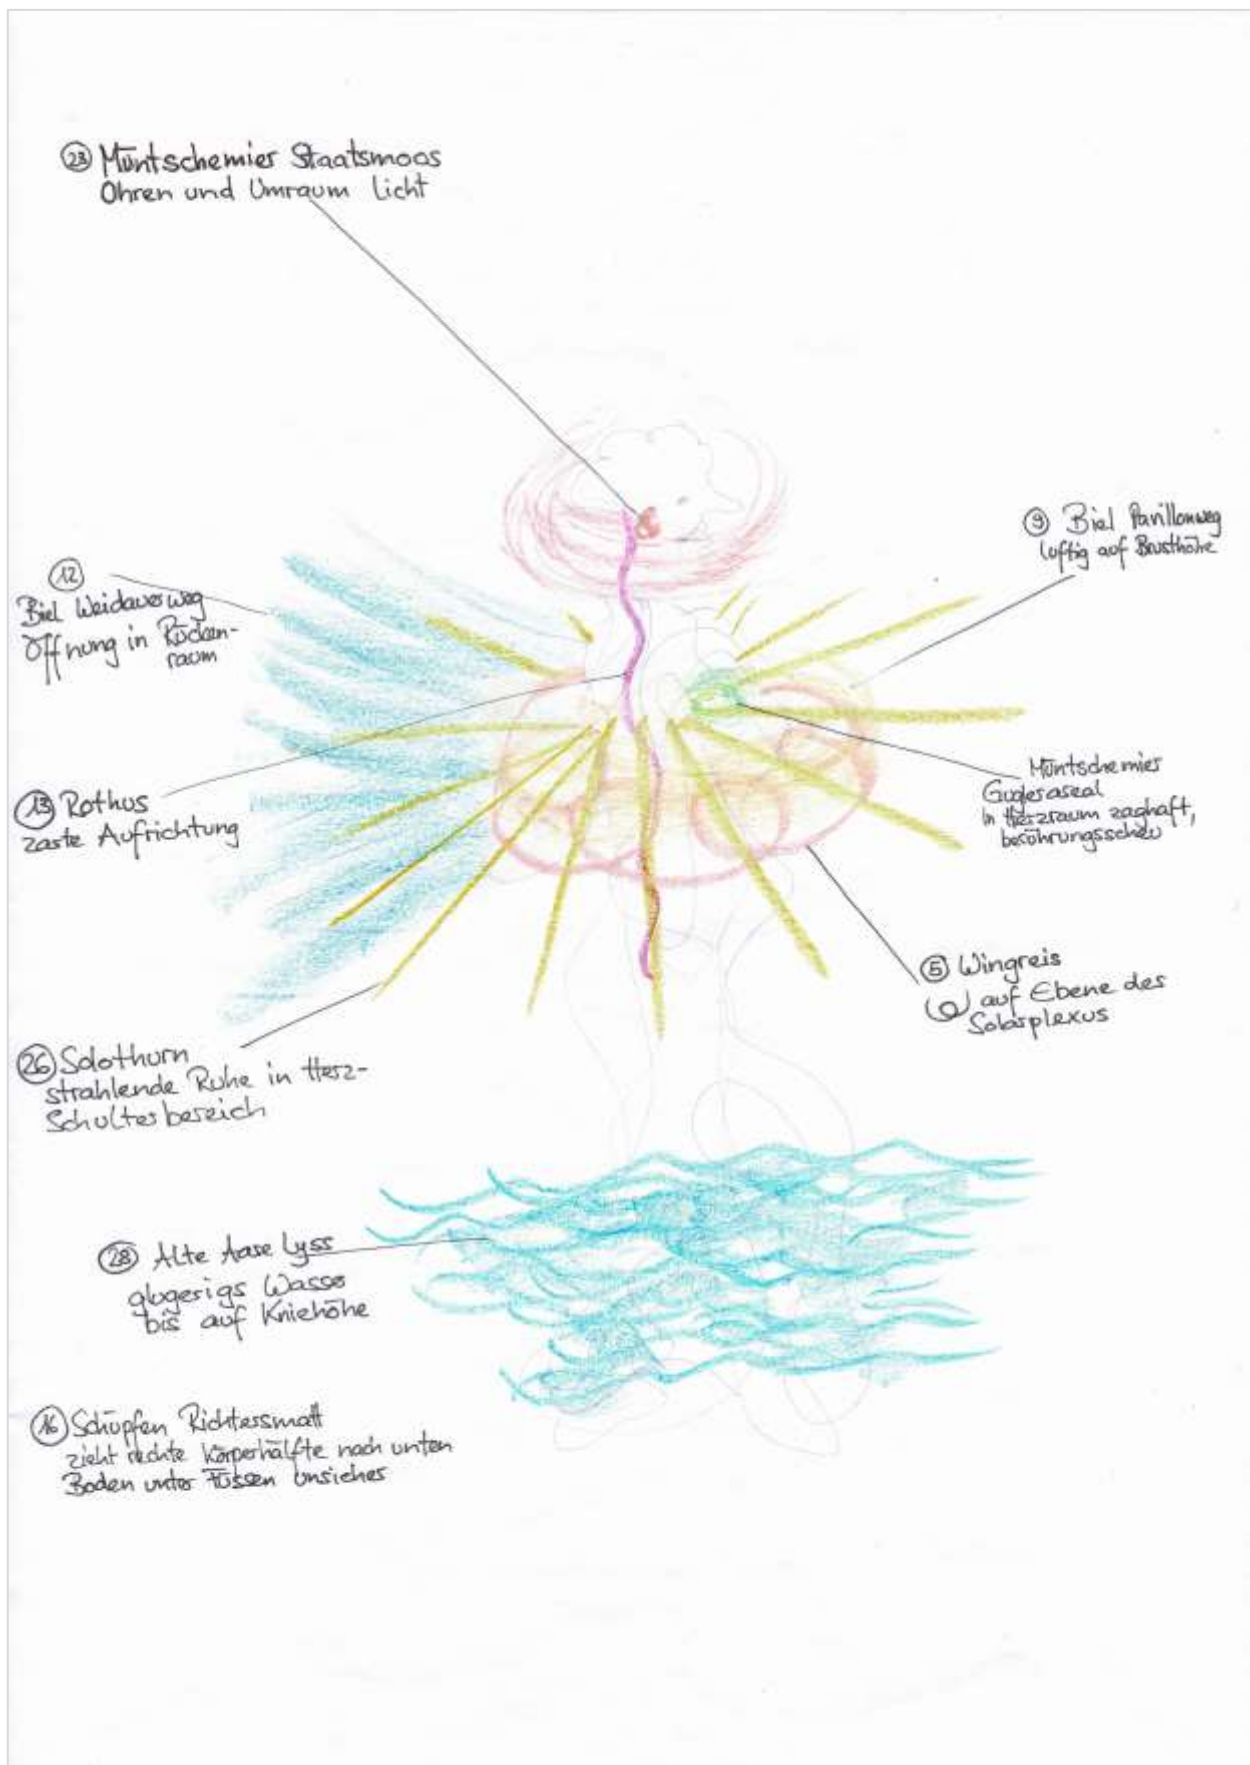 23 Müntschemier Staatsmoos
Ohren und Umraum licht
9 Biel Pavillonweg
luftig auf Brusthöhe
12
Biel Weidauerweg
Öffnung in Rücken-
raum
13 Rothus
zarte Aufrichtung
Müntschemier
Gugleraseal
in Herzraum zaghaft,
berührungsscheu
5 Wingreis
auf Ebene des
Solarplexus
26 Solothurn
strahlende Ruhe in Herz-
Schulterbereich
28 Alte Aare Lyss
glugerigs Wasser
bis auf Kniehöhe
16 Schüpfen Richtersmatt
zieht rechte Körperhälfte nach unten
Boden unter Füssen unsicher